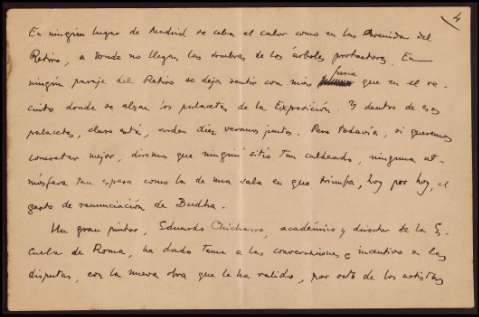 4
En ningún lugar de Madrid se ceba el calor como en las Avenidas del
Retiro, a donde no llegan las sombras de los árboles protectores. En
ningún paraje del Retiro se deja sentir con más furia que en el re-
cinto donde se alzan los palacetes de la Exposición. Y dentro de esos
palacetes, claro está, arden diez veranos juntos. Pero todavía, si queremos
concretar mejor, diremos que ningún sitio tan caldeado, ninguna at-
mósfera tan espesa como la de una sala en que triunfa, hoy por hoy, el
gesto de renunciación de Budha.
Un gran pintor, Eduardo Chicharro, académico y director de la Es-
cuela de Roma, ha dado tema a las conversaciones e incentivo a las
disputas, con la nueva obra que le ha valido, por voto de los artistas